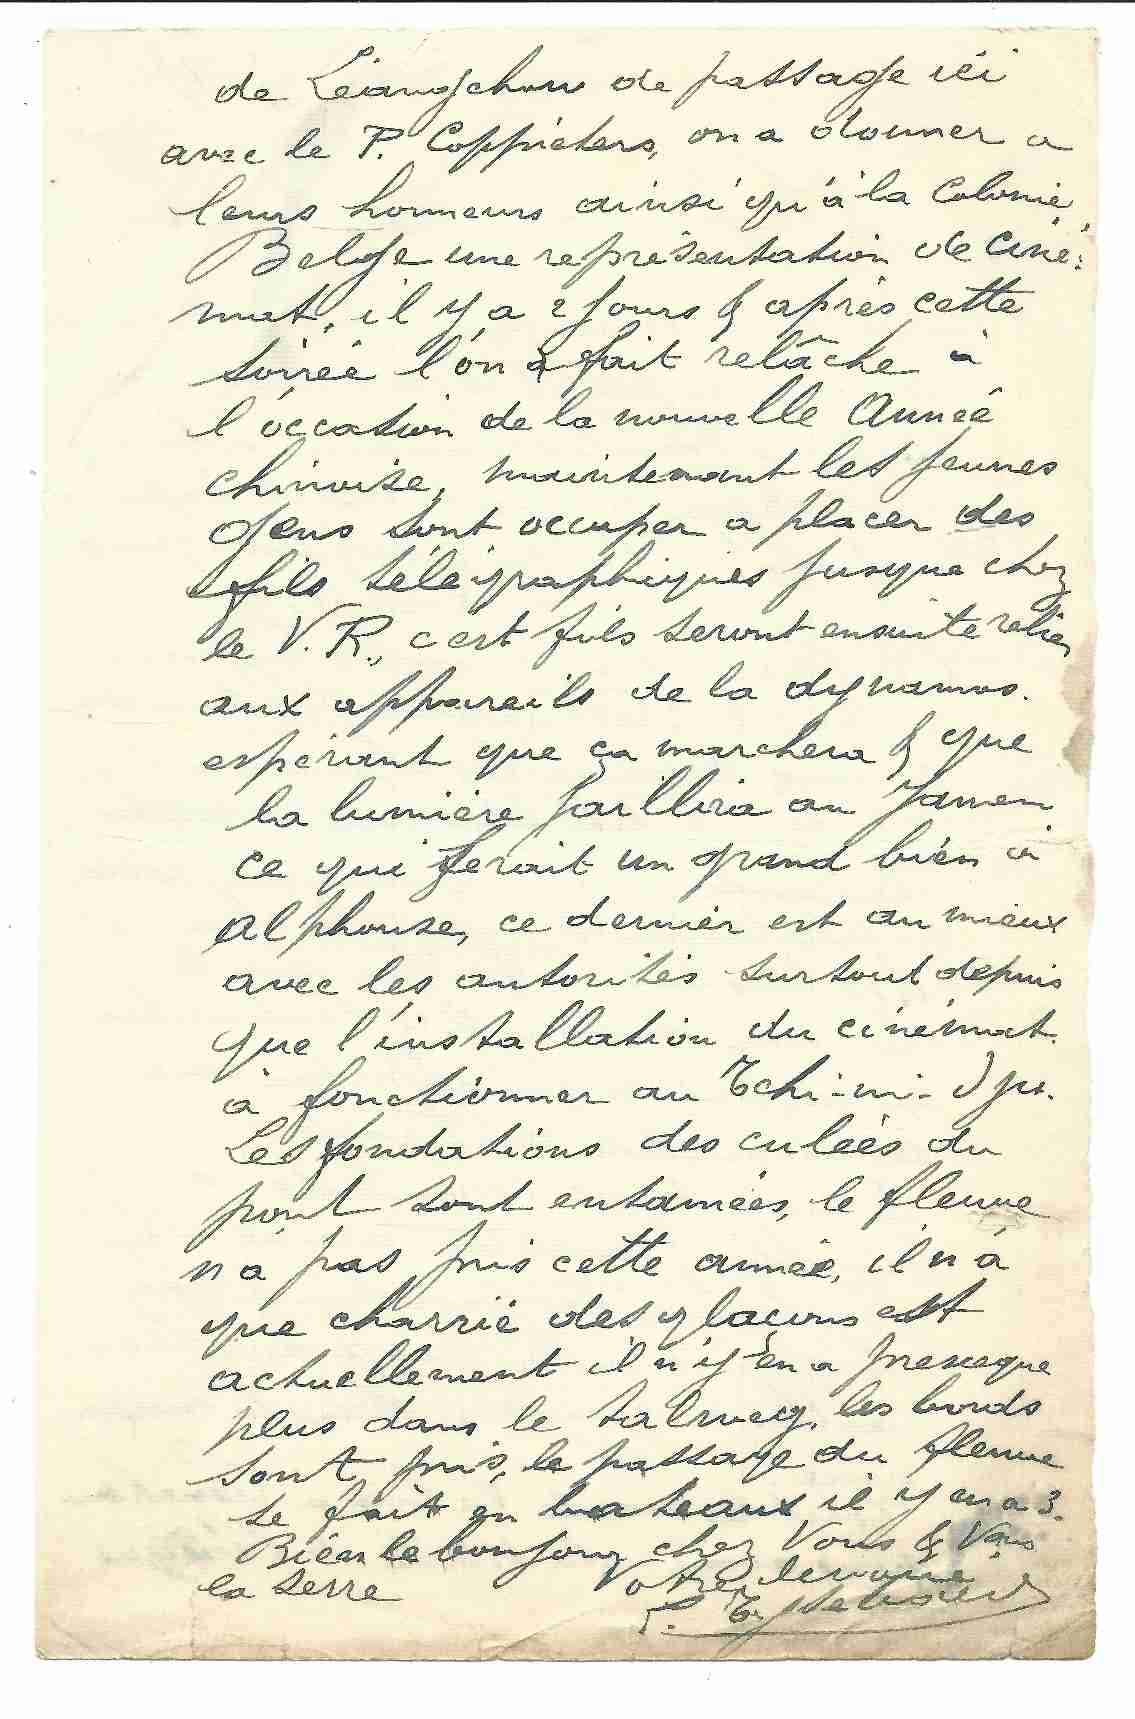 de Léiangchou de passage ici
avec le P. Coppieters, on a donner a
leurs honneurs ainsi qu'à la Colonie
Belge une représentation de ciné-
mat. il y a 2 jours & après cette
soirée l'on a fait relâche à
l'occasion de la nouvelle Année
chinoise, maintenant les jeunes
gens sont occuper a placer des
fils télégraphiques jusque chez
le V. R., c'est fils seront ensuite relier
aux appareils de la dynamos.
espérant que ça marchera & que
la lumière jaillira au Yamen
ce qui ferait un grand bien à
Alphonse, ce dernier est au mieux
avec les autorités surtout depuis
que l'installation du cinémat.
à fonctionner au Tchi-ni-
Les fondations des culées du
pont sont entamées, le fleuve
n'a pas pris cette année, il n'a
que charrié des glaçons est
actuellement il n'y en a presque
plus dans le talweg, les bords
sont pris, le passage du fleuve
se fait en bateaux il y en a 3.
Bien le bonjour chez Vous & Vous
la serre Votre dévoué